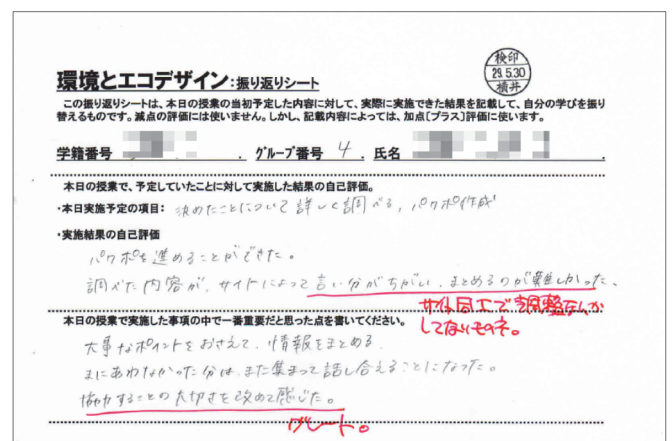 検印
29.5.30
横井
環境とエコデザイン:振り返りシート
この振り返りシートは、本日の授業の当初予定した内容に対して、実際に実施できた結果を記載して、自分の学びを振り
替えるものです。減点の評価には使いません。しかし、記載内容によっては、加点〔プラス〕評価に使います。
学籍番号 . グループ番号 4 . 氏名 .
本日の授業で、予定していたことに対して実施した結果の自己評価。
・本日実施予定の項目: 決めたことについて詳しく調べる, パワポ作成
・実施結果の自己評価
パワポを進めることができた。
調べた内容が、サイトによって言い分がちがい、まとめるのが難しかった。
サイト同士で調整なんか
してないものネ。
本日の授業で実施した事項の中で一番重要だと思った点を書いてください。
大事なポイントをおさえて、情報をまとめる
まにあわなかった分は、また集まって話し合えることになった。
協力することの大切さを改めて感じた。
グレート。